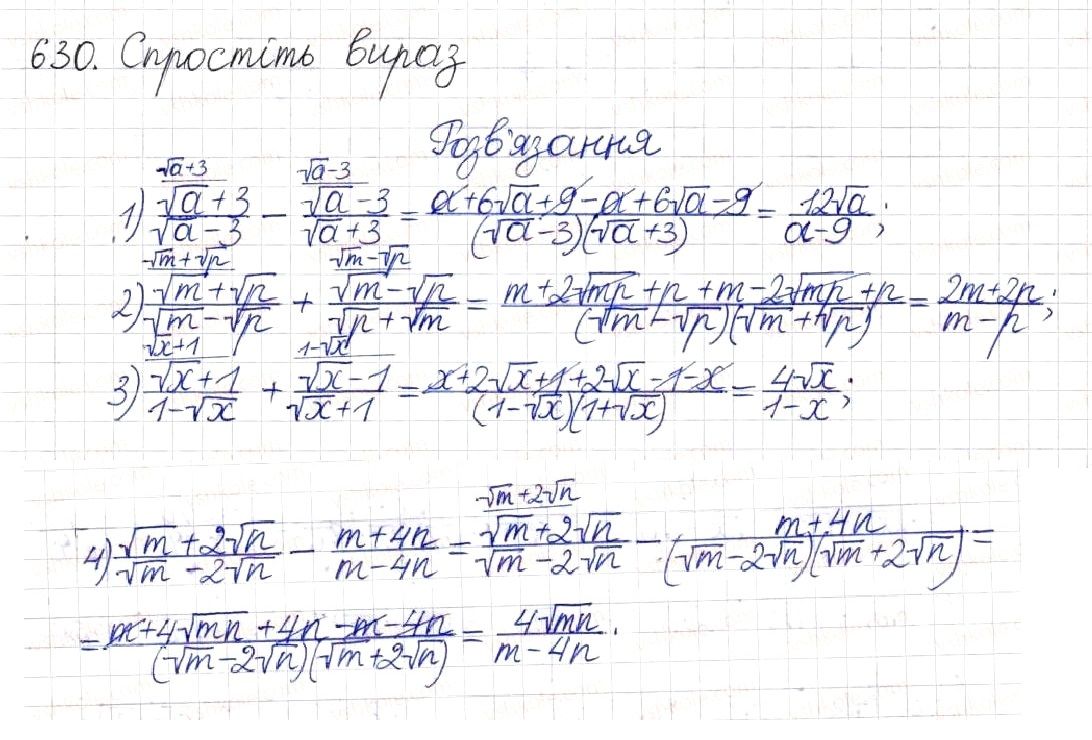 630. Спростіть вираз
Розв'язання
√a+3 √a-3
1) (√a+3)/(√a-3) - (√a-3)/(√a+3) = (a+6√a+9-a+6√a-9)/((√a-3)(√a+3)) = 12√a/(a-9);
√m+√p √m-√p
2) (√m+√p)/(√m-√p) + (√m-√p)/(√p+√m) = (m+2√mp+p+m-2√mp+p)/((√m-√p)(√m+√p)) = (2m+2p)/(m-p);
√x+1 1-√x
3) (√x+1)/(1-√x) + (√x-1)/(√x+1) = (x+2√x+1+2√x-1-x)/((1-√x)(1+√x)) = 4√x/(1-x);
√m+2√n
4) (√m+2√n)/(√m-2√n) - (m+4n)/(m-4n) = (√m+2√n)/(√m-2√n) - (m+4n)/((√m-2√n)(√m+2√n)) =
= (m+4√mn+4n-m-4n)/((√m-2√n)(√m+2√n)) = 4√mn/(m-4n).